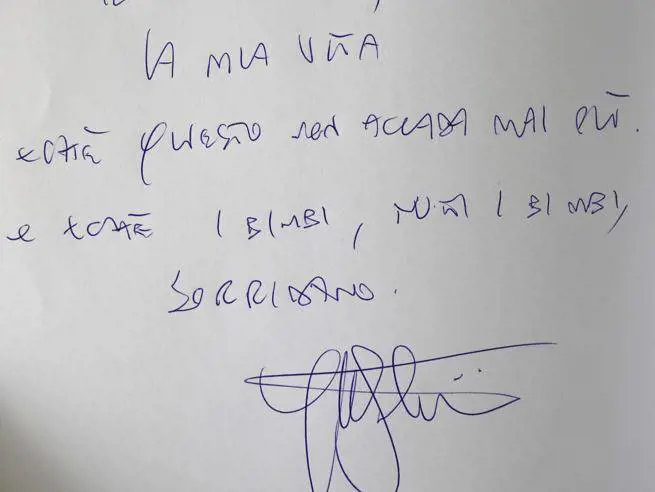 LA MIA VITA
QUESTO NON ACCADA MAI PIÙ.
e I BIMBI, TUTTI I BIMBI,
SORRIDANO.